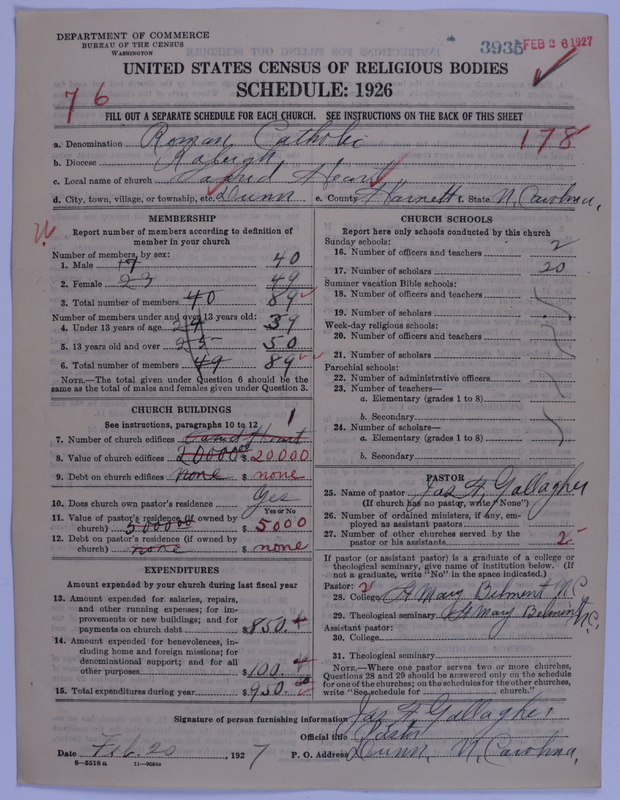 DEPARTMENT OF COMMERCE
BUREAU OF THE CENSUS
WASHINGTON
3935 FEB 26 1927
UNITED STATES CENSUS OF RELIGIOUS BODIES
SCHEDULE: 1926
76
FILL OUT A SEPARATE SCHEDULE FOR EACH CHURCH. SEE INSTRUCTIONS ON THE BACK OF THIS SHEET
178
a. Denomination Roman Catholic
b. Diocese Raleigh
c. Local name of church Sacred Heart
d. City, town, village, or township, etc. Dunn e. County Harnett f. State N. Carolina.
MEMBERSHIP
Report number of members according to definition of
member in your church
Number of members, by sex:
1. Male 17 40
2. Female 23 49
3. Total number of members 40 89
Number of members under and over 13 years old:
4. Under 13 years of age 24 39
5. 13 years old and over 25 50
6. Total number of members 49 89
NOTE.—The total given under Question 6 should be the
same as the total of males and females given under Question 3.
CHURCH BUILDINGS
See instructions, paragraphs 10 to 12
7. Number of church edifices Sacred Heart 1
8. Value of church edifices 20000.00 $ 20000
9. Debt on church edifices none $ none
10. Does church own pastor's residence? Yes
Yes or No
11. Value of pastor's residence (if owned by
church) 5000.00 $ 5000
12. Debt on pastor's residence (if owned by
church) none $ none
EXPENDITURES
Amount expended by your church during last fiscal year
13. Amount expended for salaries, repairs,
and other running expenses; for im-
provements or new buildings; and for
payments on church debt $ 850.
14. Amount expended for benevolences, in-
cluding home and foreign missions; for
denominational support; and for all
other purposes $ 100.
15. Total expenditures during year $ 950.00
CHURCH SCHOOLS
Report here only schools conducted by this church
Sunday schools:
16. Number of officers and teachers 2
17. Number of scholars 20
Summer vacation Bible schools:
18. Number of officers and teachers
19. Number of scholars
Week-day religious schools:
20. Number of officers and teachers
21. Number of scholars
Parochial schools:
22. Number of administrative officers
23. Number of teachers—
a. Elementary (grades 1 to 8)
b. Secondary
24. Number of scholars—
a. Elementary (grades 1 to 8)
b. Secondary
PASTOR
25. Name of pastor Jas A. Gallagher
(If church has no pastor, write "None")
26. Number of ordained ministers, if any, em-
ployed as assistant pastors
27. Number of other churches served by the
pastor or his assistants 2
If pastor (or assistant pastor) is a graduate of a college or
theological seminary, give name of institution below. (If
not a graduate, write "No" in the space indicated.)
Pastor: 2
28. College St Mary Belmont N C
29. Theological seminary St Mary Belmont N.C.
Assistant pastor:
30. College
31. Theological seminary
NOTE.—Where one pastor serves two or more churches,
Questions 28 and 29 should be answered only on the schedule
for one of the churches; on the schedules for the other churches,
write "See schedule for church."
Signature of person furnishing information Jas A Gallagher
Official title Pastor
Date Feb. 20 1927 P. O. Address Dunn, N. Carolina.
8—5518a 11—9056a